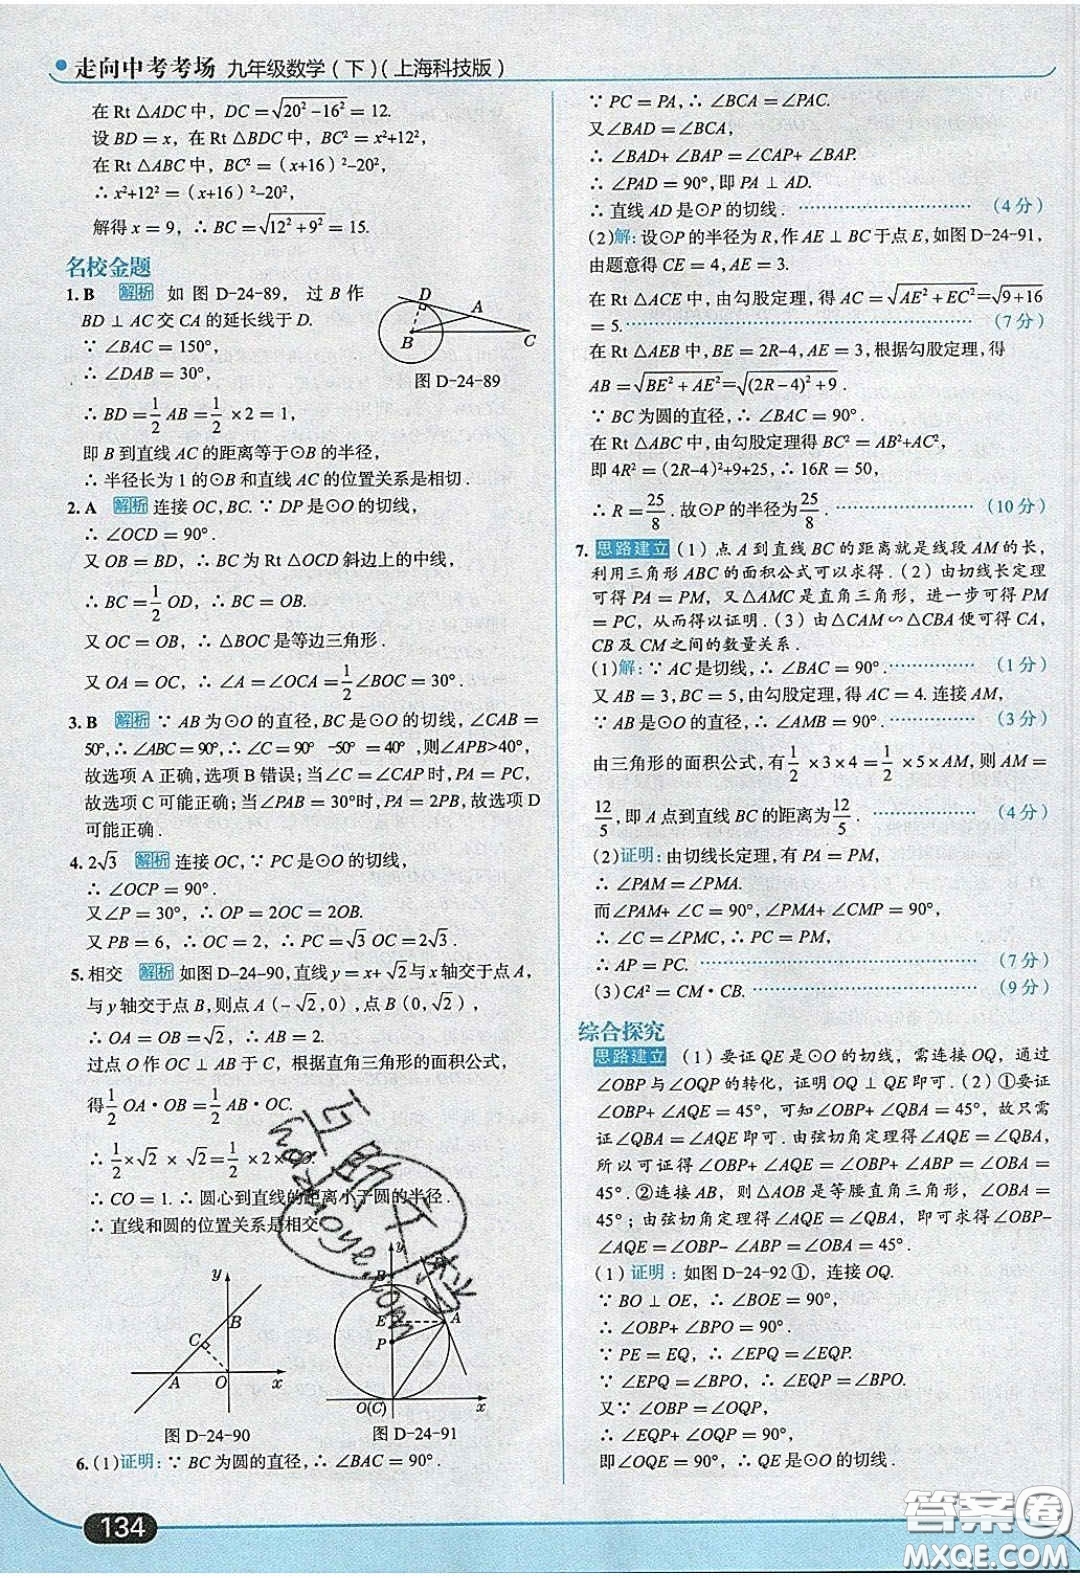 走向中考考场 九年级数学(下)(上海科技版)
在 Rt △ADC 中, DC = √(20²-16²) = 12.
设 BD = x, 在 Rt △BDC 中, BC² = x²+12²,
在 Rt △ABC 中, BC² = (x+16)²-20²,
∴ x²+12² = (x+16)²-20²,
解得 x = 9, ∴ BC = √(12²+9²) = 15.
名校金题
1. B 解析 如图 D-24-89, 过 B 作
BD ⊥ AC 交 CA 的延长线于 D.
∵ ∠BAC = 150°,
∴ ∠DAB = 30°,
∴ BD = 1/2 AB = 1/2 × 2 = 1,
D
A
B
C
图 D-24-89
即 B 到直线 AC 的距离等于⊙B 的半径,
∴ 半径长为 1 的⊙B 和直线 AC 的位置关系是相切.
2. A 解析 连接 OC, BC. ∵ DP 是⊙O 的切线,
∴ ∠OCD = 90°.
又 OB = BD, ∴ BC 为 Rt △OCD 斜边上的中线,
∴ BC = 1/2 OD, ∴ BC = OB.
又 OC = OB, ∴ △BOC 是等边三角形.
又 OA = OC, ∴ ∠A = ∠OCA = 1/2 ∠BOC = 30°.
3. B 解析 ∵ AB 为⊙O 的直径, BC 是⊙O 的切线, ∠CAB =
50°, ∴ ∠ABC = 90°, ∴ ∠C = 90° -50° = 40°, 则∠APB>40°,
故选项 A 正确, 选项 B 错误; 当∠C = ∠CAP 时, PA = PC,
故选项 C 可能正确; 当∠PAB = 30°时, PA = 2PB, 故选项 D
可能正确.
4. 2√3 解析 连接 OC, ∵ PC 是⊙O 的切线,
∴ ∠OCP = 90°.
又∠P = 30°, ∴ OP = 2OC = 2OB.
又 PB = 6, ∴ OC = 2, ∴ PC = √3 OC = 2√3.
5. 相交 解析 如图 D-24-90, 直线 y = x+√2 与 x 轴交于点 A,
与 y 轴交于点 B, 则点 A (-√2, 0), 点 B (0, √2),
∴ OA = OB = √2, ∴ AB = 2.
过点 O 作 OC ⊥ AB 于 C, 根据直角三角形的面积公式,
得 1/2 OA·OB = 1/2 AB·OC.
∴ 1/2 ×√2 × √2 = 1/2 ×2×OC.
∴ CO = 1. ∴ 圆心到直线的距离小于圆的半径.
∴ 直线和圆的位置关系是相交.
y
B
C
A
O
x
图 D-24-90
y
B
E
A
P
O(C)
x
图 D-24-91
6. (1)证明: ∵ BC 为圆的直径, ∴ ∠BAC = 90°.
∵ PC = PA, ∴ ∠BCA = ∠PAC.
又∠BAD = ∠BCA,
∴ ∠BAD+ ∠BAP = ∠CAP+ ∠BAP.
∴ ∠PAD = 90°, 即 PA ⊥ AD.
∴ 直线 AD 是⊙P 的切线. (4 分)
(2)解: 设⊙P 的半径为 R, 作 AE ⊥ BC 于点 E, 如图 D-24-91,
由题意得 CE = 4, AE = 3.
在 Rt △ACE 中, 由勾股定理, 得 AC = √(AE²+EC²) = √(9+16)
= 5. (7 分)
在 Rt △AEB 中, BE = 2R-4, AE = 3, 根据勾股定理, 得
AB = √(BE²+AE²) = √((2R-4)²+9).
∵ BC 为圆的直径, ∴ ∠BAC = 90°.
在 Rt △ABC 中, 由勾股定理得 BC² = AB²+AC²,
即 4R² = (2R-4)²+9+25, ∴ 16R = 50,
∴ R = 25/8. 故⊙P 的半径为 25/8. (10 分)
7. 思路建立 (1) 点 A 到直线 BC 的距离就是线段 AM 的长,
利用三角形 ABC 的面积公式可以求得. (2) 由切线长定理
可得 PA = PM, 又△AMC 是直角三角形, 进一步可得 PM
= PC, 从而得以证明. (3) 由△CAM ∽ △CBA 便可得 CA,
CB 及 CM 之间的数量关系.
(1)解: ∵ AC 是切线, ∴ ∠BAC = 90°. (1 分)
又 AB = 3, BC = 5, 由勾股定理, 得 AC = 4. 连接 AM,
∵ AB 是⊙O 的直径, ∴ ∠AMB = 90°. (3 分)
由三角形的面积公式, 有 1/2 ×3×4 = 1/2 ×5×AM, 则 AM =
12/5, 即 A 点到直线 BC 的距离为 12/5. (4 分)
(2)证明: 由切线长定理, 有 PA = PM,
∴ ∠PAM = ∠PMA.
而∠PAM+ ∠C = 90°, ∠PMA+ ∠CMP = 90°,
∴ ∠C = ∠PMC, ∴ PC = PM,
∴ AP = PC. (7 分)
(3) CA² = CM·CB. (9 分)
综合探究
思路建立 (1) 要证 QE 是⊙O 的切线, 需连接 OQ, 通过
∠OBP 与∠OQP 的转化, 证明 OQ ⊥ QE 即可. (2) ①要证
∠OBP+ ∠AQE = 45°, 可知∠OBP+ ∠ABP = 45°, 故只需
证∠QBA = ∠AQE 即可. 由弦切角定理得∠AQE = ∠QBA,
所以可证得∠OBP+ ∠AQE = ∠OBP+ ∠ABP = ∠OBA =
45°. ②连接 AB, 则△AOB 是等腰直角三角形, ∠OBA =
45°; 由弦切角定理得∠AQE = ∠QBA, 即可求得∠OBP-
∠AQE = ∠OBP- ∠ABP = ∠OBA = 45°.
(1) 证明: 如图 D-24-92 ①, 连接 OQ.
∵ BO ⊥ OE, ∴ ∠BOE = 90°,
∴ ∠OBP+ ∠BPO = 90°.
∵ PE = EQ, ∴ ∠EPQ = ∠EQP.
∵ ∠EPQ = ∠BPO, ∴ ∠EQP = ∠BPO.
又∵ ∠OBP = ∠OQP,
∴ ∠EQP + ∠OQP = 90°,
即∠OQE = 90°. ∴ QE 是⊙O 的切线.
134
答案圈
MXQE.COM